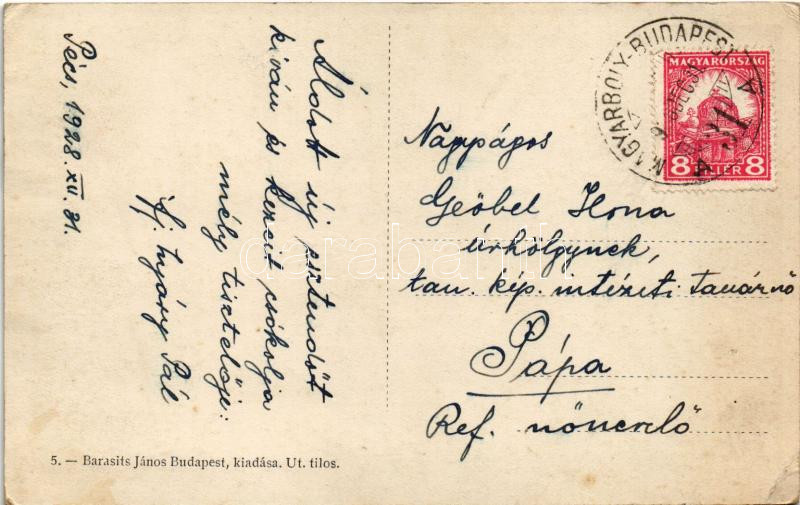 Pécs, 1928. XII. 31.
Áldott új esztendőt
kíván és kezeit csókolja
mély tisztelője:
ifj. Nyáry Pál
Nagyságos
Geöbel Ilona
úrhölgynek,
tan. kép. intézeti tanárnő
Pápa
Ref. nőnevelő
MAGYARBOLY-BUDAPEST
MAGYARORSZÁG
8 FILLÉR 8
5. — Barasits János Budapest, kiadása. Ut. tilos.
darabanth